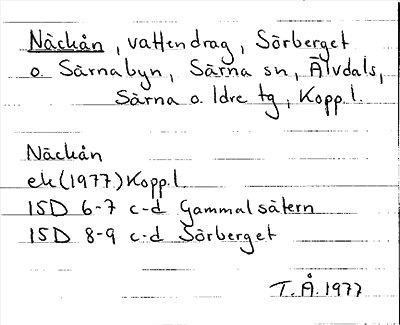 Näckån, vattendrag, Sörberget
o. Särnabyn, Särna sn, Älvdals,
Särna o. Idre tg, Kopp.l.
Näckån
ek(1977)Kopp.l
15D 6-7 c-d Gammalsätern
15D 8-9 c-d Sörberget
T.Å.1977